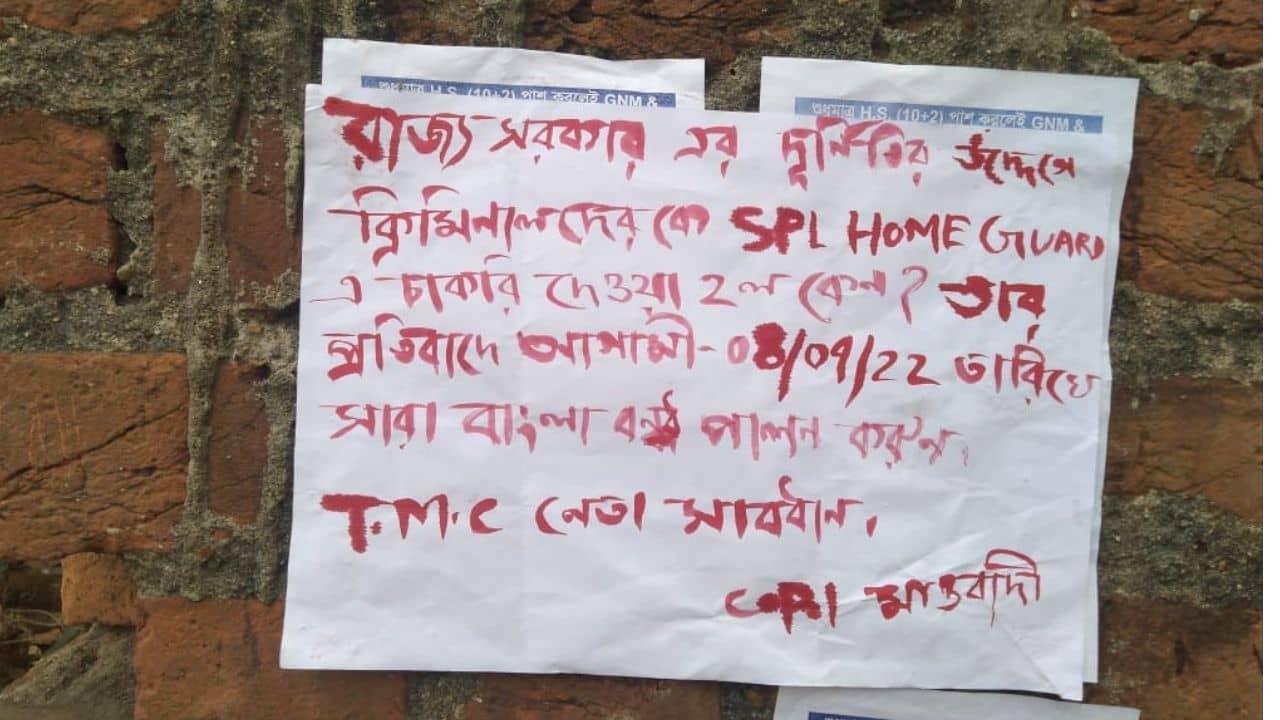 শুধুমাত্র H.S. (10+2) পাশ করলেই GNM &
শুধুমাত্র H.S. (10+2) পাশ করলেই GNM &
রাজ্য সরকার এর দূর্নিতির উদ্দেগে
ক্রিমিনালদের কে SPL HOME GUARD
এ চাকরি দেওয়া হল কেন? তার
প্রতিবাদে আগামী- 08/04/22 তারিখে
সারা বাংলা বনধ পালন করুন,
T.M.C নেতা সাবধান,
CPI মাওবাদী